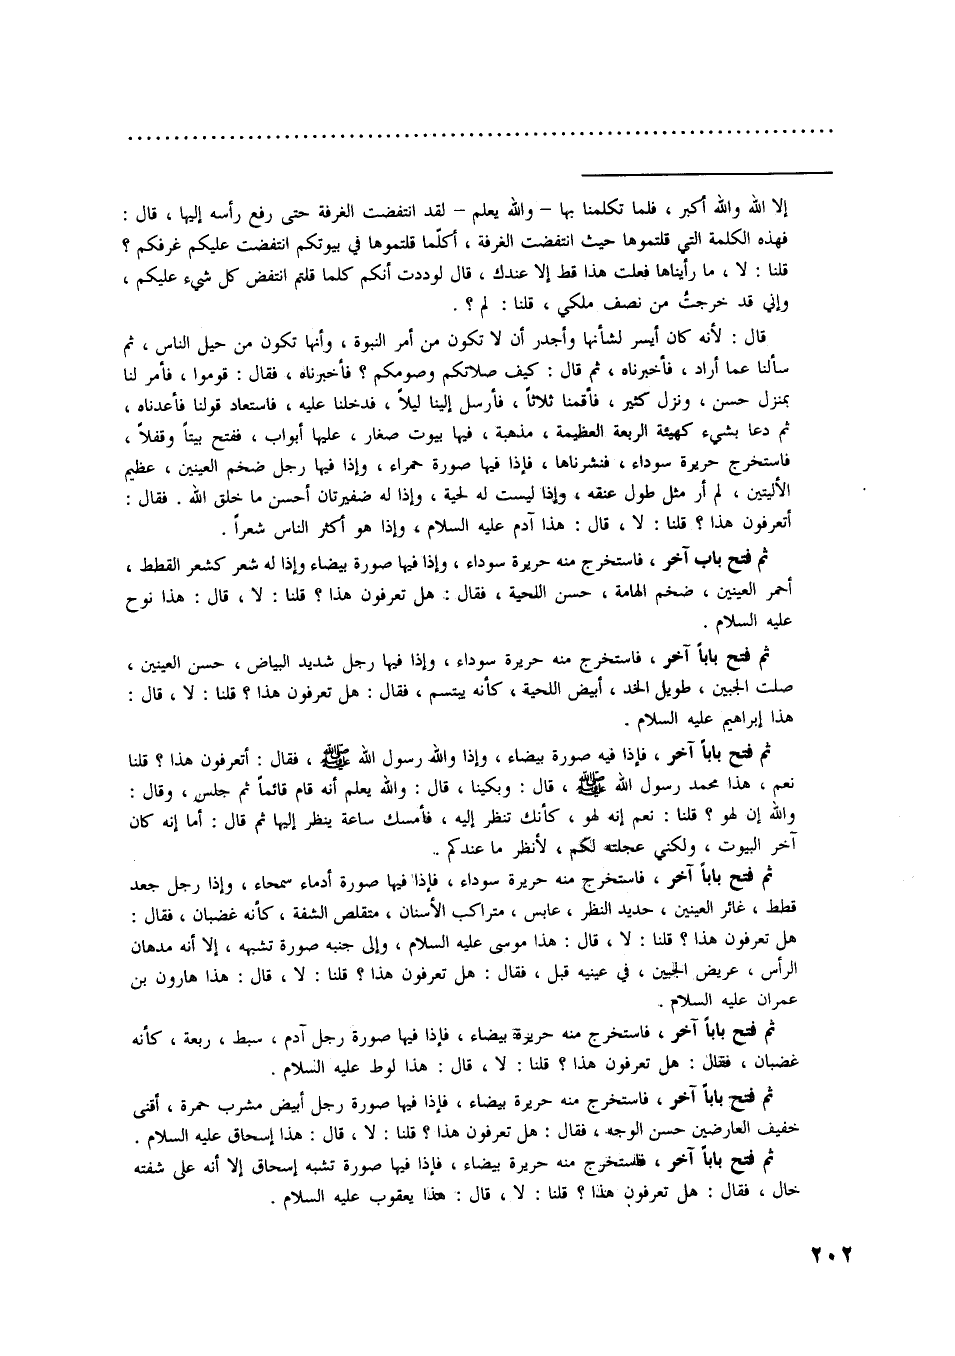 إلا الله والله أكبر ، فلما تكلمنا بها – والله يعلم – لقد انتفضت الغرفة حتى رفع رأسه إليها ، قال :
فهذه الكلمة التي قلتموها حيث انتفضت الغرفة ، أكلّما قلتموها في بيوتكم انتفضت عليكم غرفكم ؟
قلنا : لا ، ما رأيناها فعلت هذا قط إلا عندك ، قال لوددت أنكم كلما قلتم انتفض كل شيء عليكم ،
وإني قد خرجتُ من نصف ملكي ، قلنا : لم ؟ .
قال : لأنه كان أيسر لشأنها وأجدر أن لا تكون من أمر النبوة ، وأنها تكون من حيل الناس ، ثم
سألنا عما أراد ، فأخبرناه ، ثم قال : كيف صلاتكم وصومكم ؟ فأخبرناه ، فقال : قوموا ، فأمر لنا
بمنزل حسن ، ونزل كثير ، فأقمنا ثلاثاً ، فأرسل إلينا ليلاً ، فدخلنا عليه ، فاستعاد قولنا فأعدناه ،
ثم دعا بشيء كهيئة الربعة العظيمة ، مذهبة ، فيها بيوت صغار ، عليها أبواب ، ففتح بيتاً وقفلاً ،
فاستخرج حريرة سوداء ، فنشرناها ، فإذا فيها صورة حمراء ، وإذا فيها رجل ضخم العينين ، عظيم
الأليتين ، لم أر مثل طول عنقه ، وإذا ليست له لحية ، وإذا له ضفيرتان أحسن ما خلق الله . فقال :
أتعرفون هذا ؟ قلنا : لا ، قال : هذا آدم عليه السلام ، وإذا هو أكثر الناس شعراً .
ثم فتح باب آخر ، فاستخرج منه حريرة سوداء ، وإذا فيها صورة بيضاء وإذا له شعر كشعر القطط ،
أحمر العينين ، ضخم الهامة ، حسن اللحية ، فقال : هل تعرفون هذا ؟ قلنا : لا ، قال : هذا نوح
عليه السلام .
ثم فتح باباً آخر ، فاستخرج منه حريرة سوداء ، وإذا فيها رجل شديد البياض ، حسن العينين ،
صلت الجبين ، طويل الخد ، أبيض اللحية ، كأنه يبتسم ، فقال : هل تعرفون هذا ؟ قلنا : لا ، قال :
هذا إبراهيم عليه السلام .
ثم فتح باباً آخر ، فإذا فيه صورة بيضاء ، وإذا والله رسول الله ﷺ ، فقال : أتعرفون هذا ؟ قلنا
نعم ، هذا محمد رسول الله ﷺ ، قال : وبكينا ، قال : والله يعلم أنه قام قائماً ثم جلس ، وقال :
والله إن لهو ؟ قلنا : نعم إنه لهو ، كأنك تنظر إليه ، فأمسك ساعة ينظر إليها ثم قال : أما إنه كان
آخر البيوت ، ولكني عجلته لكم ، لأنظر ما عندكم .
ثم فتح باباً آخر ، فاستخرج منه حريرة سوداء ، فإذا فيها صورة أدماء سمحاء ، وإذا رجل جعد
قطط ، غائر العينين ، حديد النظر ، عابس ، متراكب الأسنان ، متقلص الشفة ، كأنه غضبان ، فقال :
هل تعرفون هذا ؟ قلنا : لا ، قال : هذا موسى عليه السلام ، وإلى جنبه صورة تشبهه ، إلا أنه مدهان
الرأس ، عريض الجبين ، في عينيه قبل ، فقال : هل تعرفون هذا ؟ قلنا : لا ، قال : هذا هارون بن
عمران عليه السلام .
ثم فتح باباً آخر ، فاستخرج منه حريرة بيضاء ، فإذا فيها صورة رجل آدم ، سبط ، ربعة ، كأنه
غضبان ، فقال : هل تعرفون هذا ؟ قلنا : لا ، قال : هذا لوط عليه السلام .
ثم فتح باباً آخر ، فاستخرج منه حريرة بيضاء ، فإذا فيها صورة رجل أبيض مشرب حمرة ، أقنى
خفيف العارضين حسن الوجه ، فقال : هل تعرفون هذا ؟ قلنا : لا ، قال : هذا إسحاق عليه السلام .
ثم فتح باباً آخر ، فاستخرج منه حريرة بيضاء ، فإذا فيها صورة تشبه إسحاق إلا أنه على شفته
خال ، فقال : هل تعرفون هذا ؟ قلنا : لا ، قال : هذا يعقوب عليه السلام .
٢٠٢